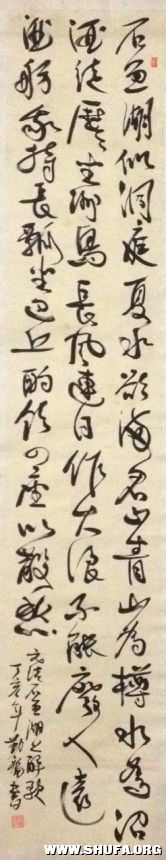 石魚湖似洞庭夏水欲滿君山青山為樽水為沼
酒徒歷歷坐洲島長風連日作大浪不能廢人運
酒舫我持長瓢坐巴丘酌飲四座以散愁
元結石魚湖上醉歌
丁亥年 書
WWW.SHUFA.ORG